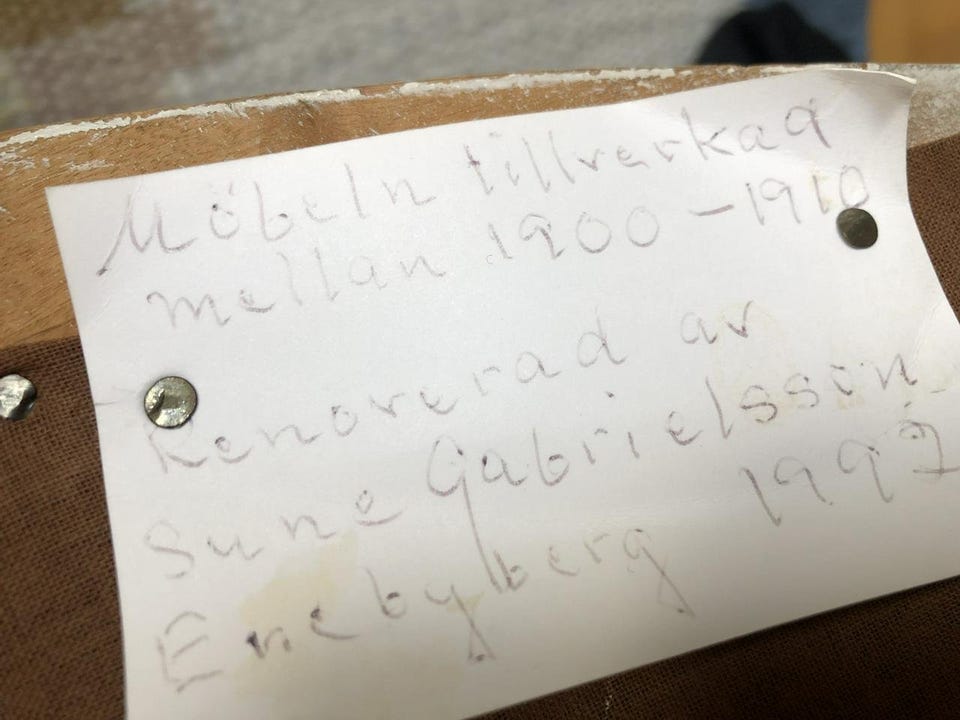 Möbeln tillverkad
mellan 1900-1910
Renoverad av
Sune Gabrielsson
Enebyberg